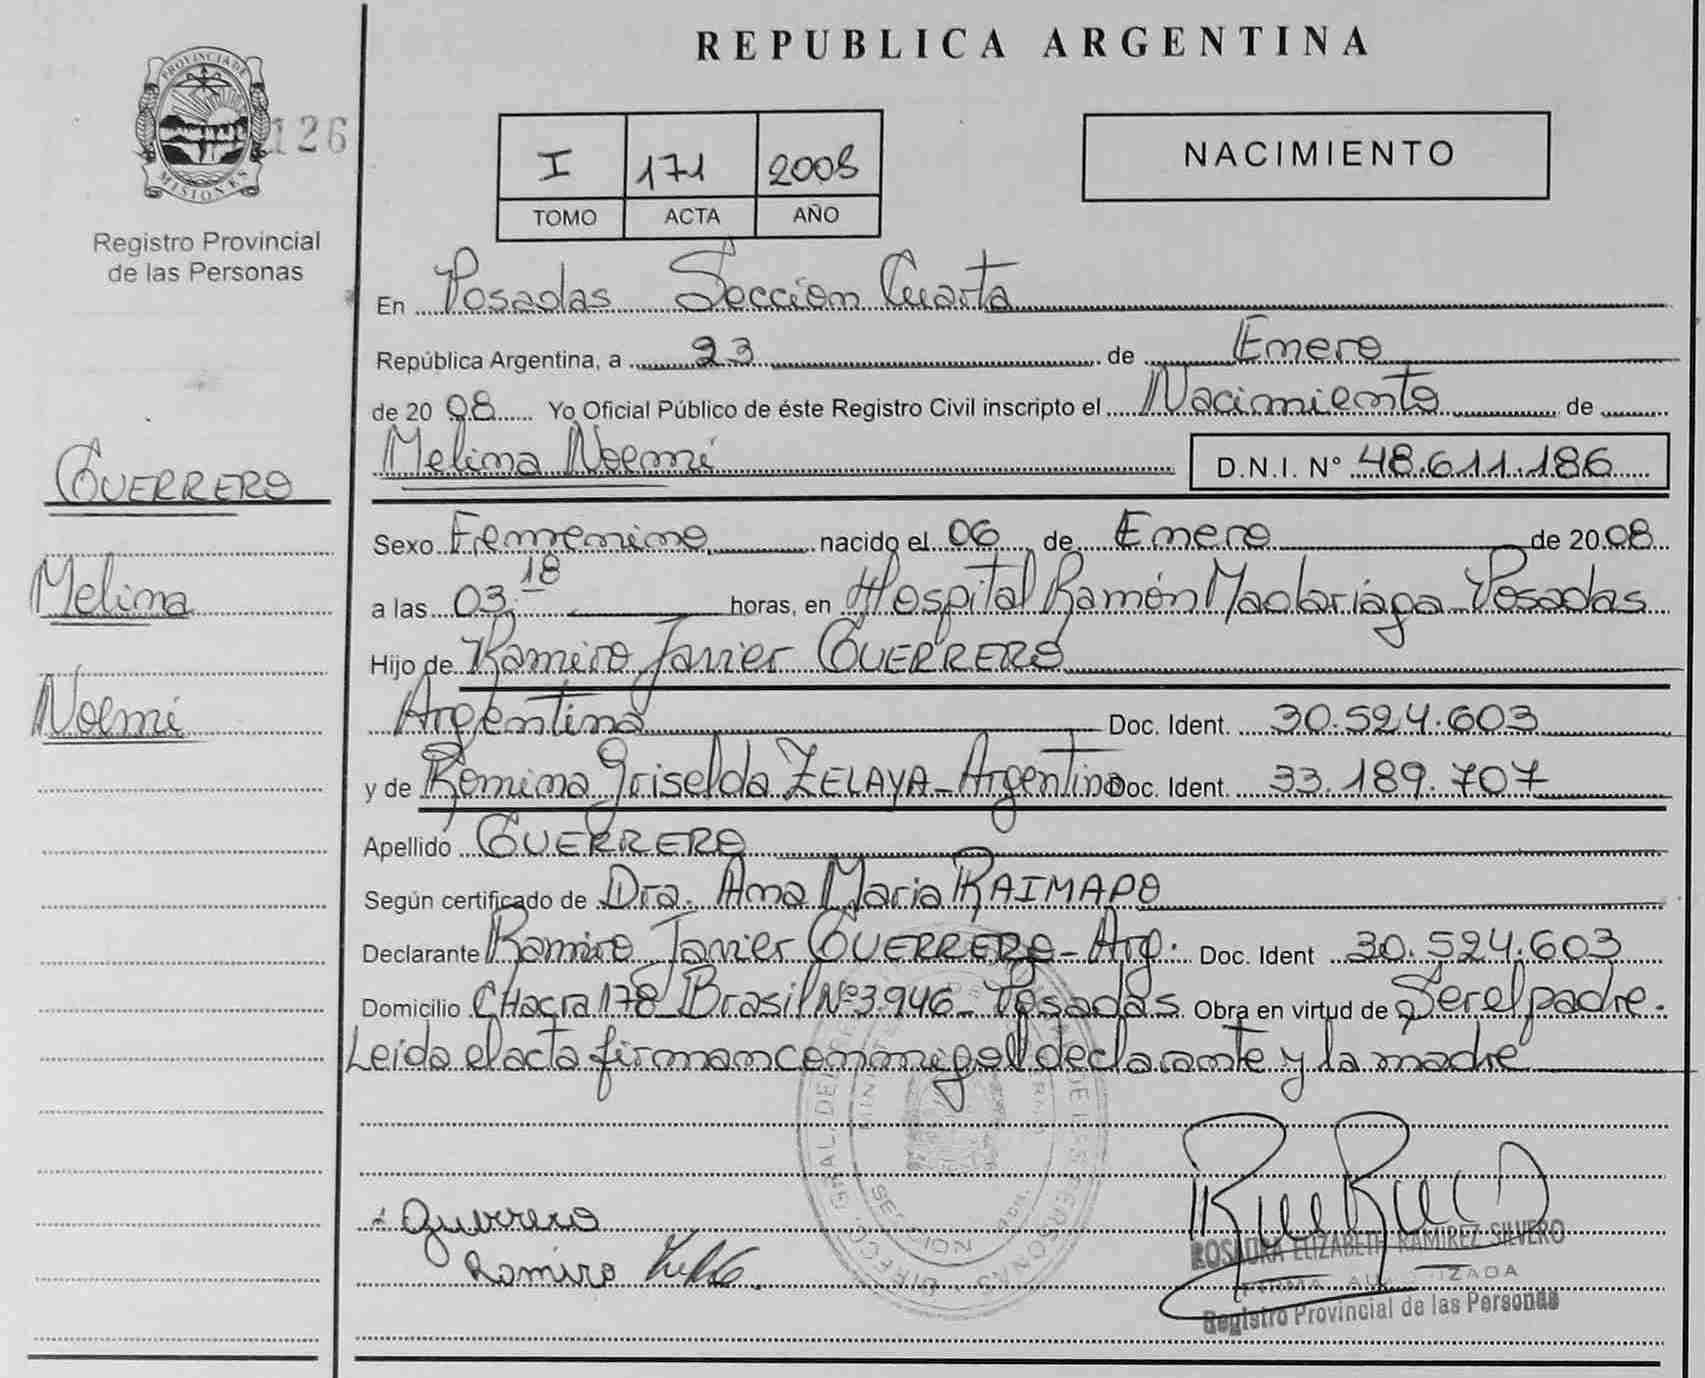 REPUBLICA ARGENTINA
PROVINCIA DE
MISIONES
126
Registro Provincial
de las Personas
I 171 2008
TOMO ACTA AÑO
NACIMIENTO
En Posadas Sección Cuarta
República Argentina, a 23 de Enero
de 20 08 Yo Oficial Público de éste Registro Civil inscripto el Nacimiento de
Melina Noemí D.N.I. Nº 48.611.186
GUERRERO
Melina
Noemí
Sexo Femenino nacido el 06 de Enero de 20 08
a las 03.18 horas, en Hospital Ramón Madariaga Posadas
Hijo de Ramiro Javier GUERRERO
Argentina Doc. Ident. 30.524.603
y de Romina Griselda ZELAYA - Argentina Doc. Ident. 33.189.707
Apellido GUERRERO
Según certificado de Dra. Ana Maria RAIMAPO
Declarante Ramiro Javier GUERRERO - Arg. Doc. Ident 30.524.603
Domicilio CHacra 178 Brasil Nº 3.946 - Posadas. Obra en virtud de Ser el padre.
Leída el acta firman conmigo el declarante y la madre
Guerrero
Ramiro
ROSAURA ELIZABETH RAMIREZ SILVERO
FIRMA AUTORIZADA
Registro Provincial de las Personas